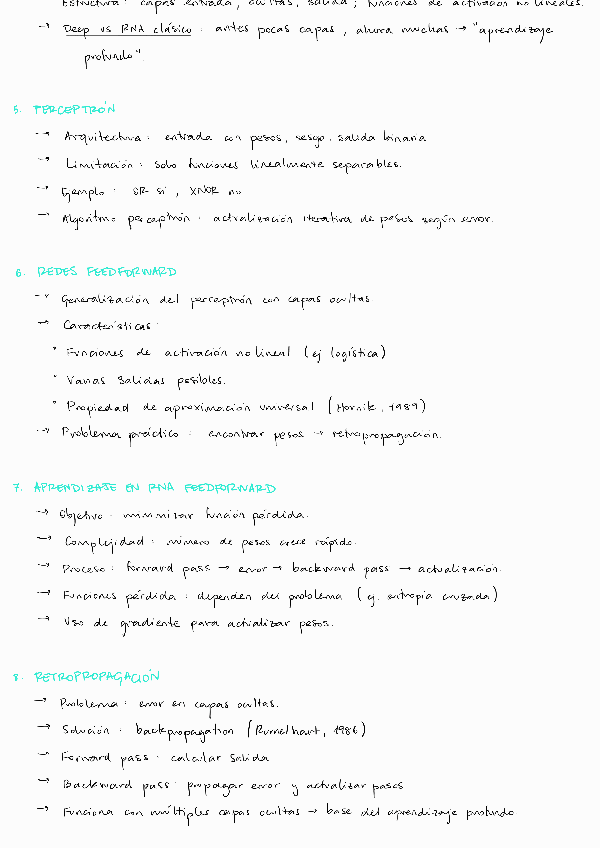 Estructura: capas entrada, ocultas, salida; funciones de activación no lineales.
→ Deep vs RNA clásico: antes pocas capas, ahora muchas → "aprendizaje
profundo".
5. PERCEPTRÓN
→ Arquitectura: entrada con pesos, sesgo, salida binaria.
→ Limitación: solo funciones linealmente separables.
→ Ejemplo: OR sí, XNOR no
→ Algoritmo perceptrón: actualización iterativa de pesos según error.
6. REDES FEEDFORWARD
→ Generalización del perceptrón con capas ocultas.
→ Características:
° Funciones de activación no lineal (ej logística)
° Varias salidas posibles.
° Propiedad de aproximación universal (Hornik, 1989)
→ Problema práctico: encontrar pesos → retropropagación.
7. APRENDIZAJE EN RNA FEEDFORWARD
→ Objetivo: minimizar función pérdida.
→ Complejidad: número de pesos crece rápido.
→ Proceso: forward pass → error → backward pass → actualización.
→ Funciones pérdida: dependen del problema (ej. entropía cruzada)
→ Uso de gradiente para actualizar pesos.
8. RETROPROPAGACIÓN
→ Problema: error en capas ocultas.
→ Solución: backpropagation (Rumelhart, 1986)
→ Forward pass: calcular salida
→ Backward pass: propagar error y actualizar pesos
→ Funciona con múltiples capas ocultas → base del aprendizaje profundo